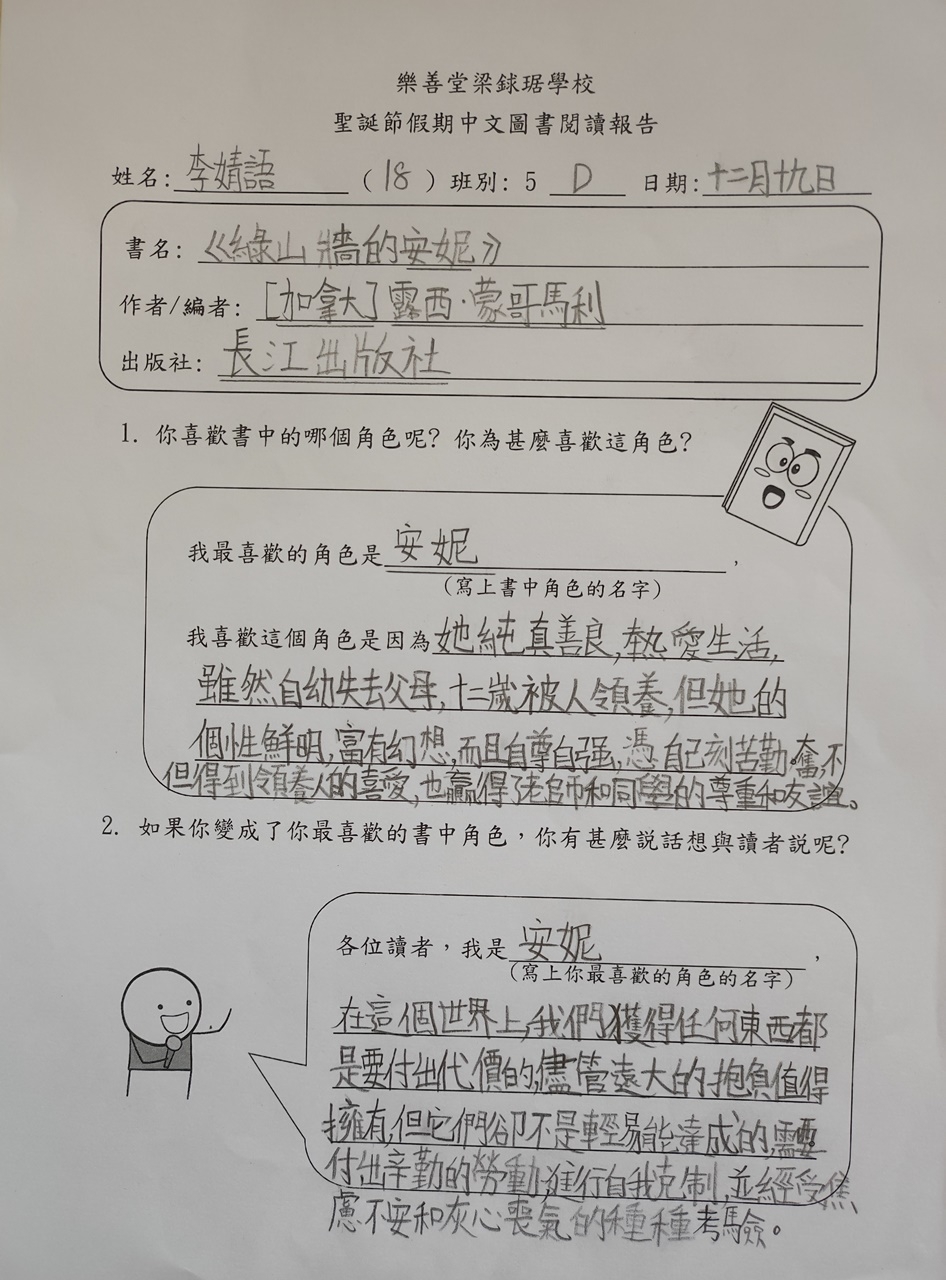 樂善堂梁銶琚學校
聖誕節假期中文圖書閱讀報告
姓名:李婧語(18)班別:5 D 日期:十二月十九日
書名:《綠山牆的安妮》
作者/編者:[加拿大]露西·蒙哥馬利
出版社:長江出版社
1. 你喜歡書中的哪個角色呢?你為甚麼喜歡這角色?
我最喜歡的角色是安妮,
(寫上書中角色的名字)
我喜歡這個角色是因為她純真善良,熱愛生活,
雖然自幼失去父母,十二歲被人領養,但她的
個性鮮明,富有幻想,而且自尊自強,憑自己刻苦勤奮,不
但得到領養人的喜愛,也贏得了老師和同學的尊重和友誼。
2. 如果你變成了你最喜歡的書中角色,你有甚麼説話想與讀者説呢?
各位讀者,我是安妮,
(寫上你最喜歡的角色的名字)
在這個世界上,我們獲得任何東西都
是要付出代價的,儘管遠大的抱負值得
擁有,但它們卻不是輕易能達成的,需要
付出辛勤的勞動,進行自我克制,並經受焦
慮不安和灰心喪氣的種種考驗。